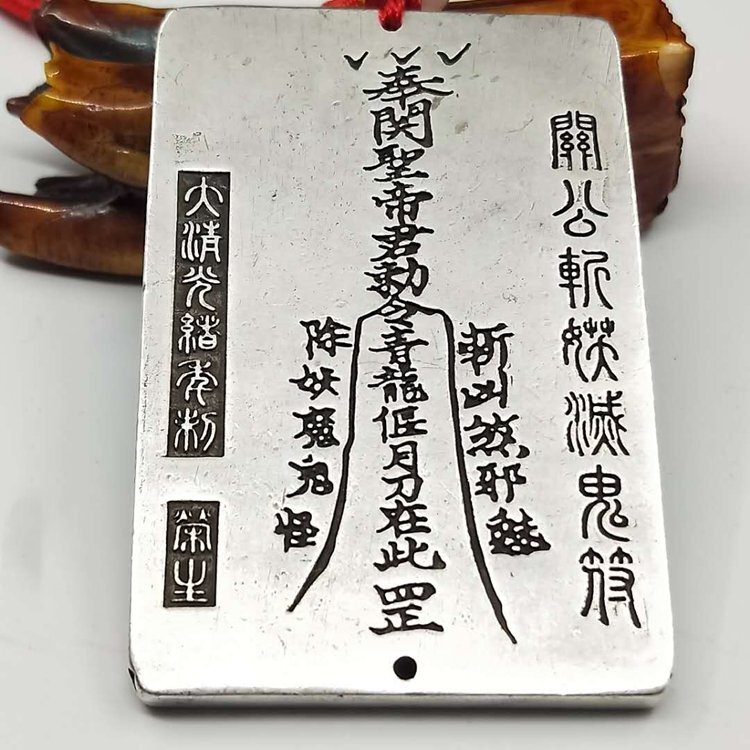 關公斬滅鬼符
斬凶煞邪
奉関聖帝君勅令青龍偃月刀在此罡
除妖魔鬼怪
大清光緒年制
生